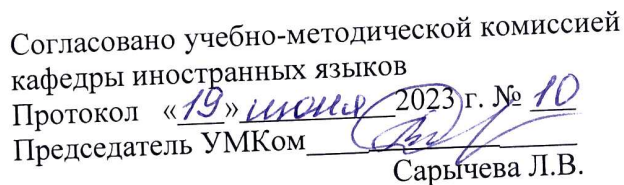 Согласовано учебно-методической комиссией
кафедры иностранных языков
Протокол «19» июня 2023 г. № 10
Председатель УМКом
Сарычева Л.В.